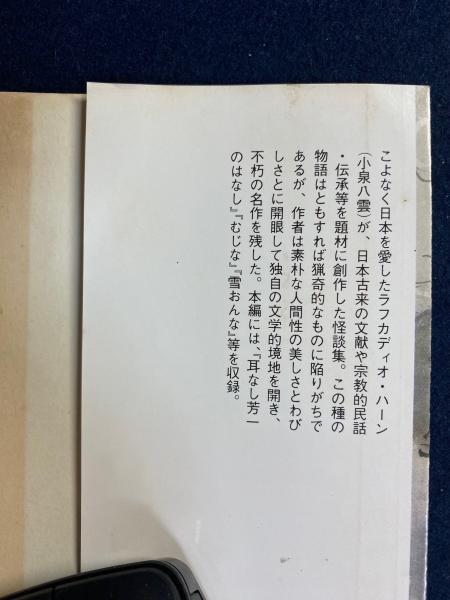 こよなく日本を愛したラフカディオ・ハーン
(小泉八雲)が、日本古来の文献や宗教的民話
・伝承等を題材に創作した怪談集。この種の
物語はともすれば猟奇的なものに陥りがちで
あるが、作者は素朴な人間性の美しさとわび
しさとに開眼して独自の文学的境地を開き、
不朽の名作を残した。本編には、『耳なし芳一
のはなし』『むじな』『雪おんな』等を収録。